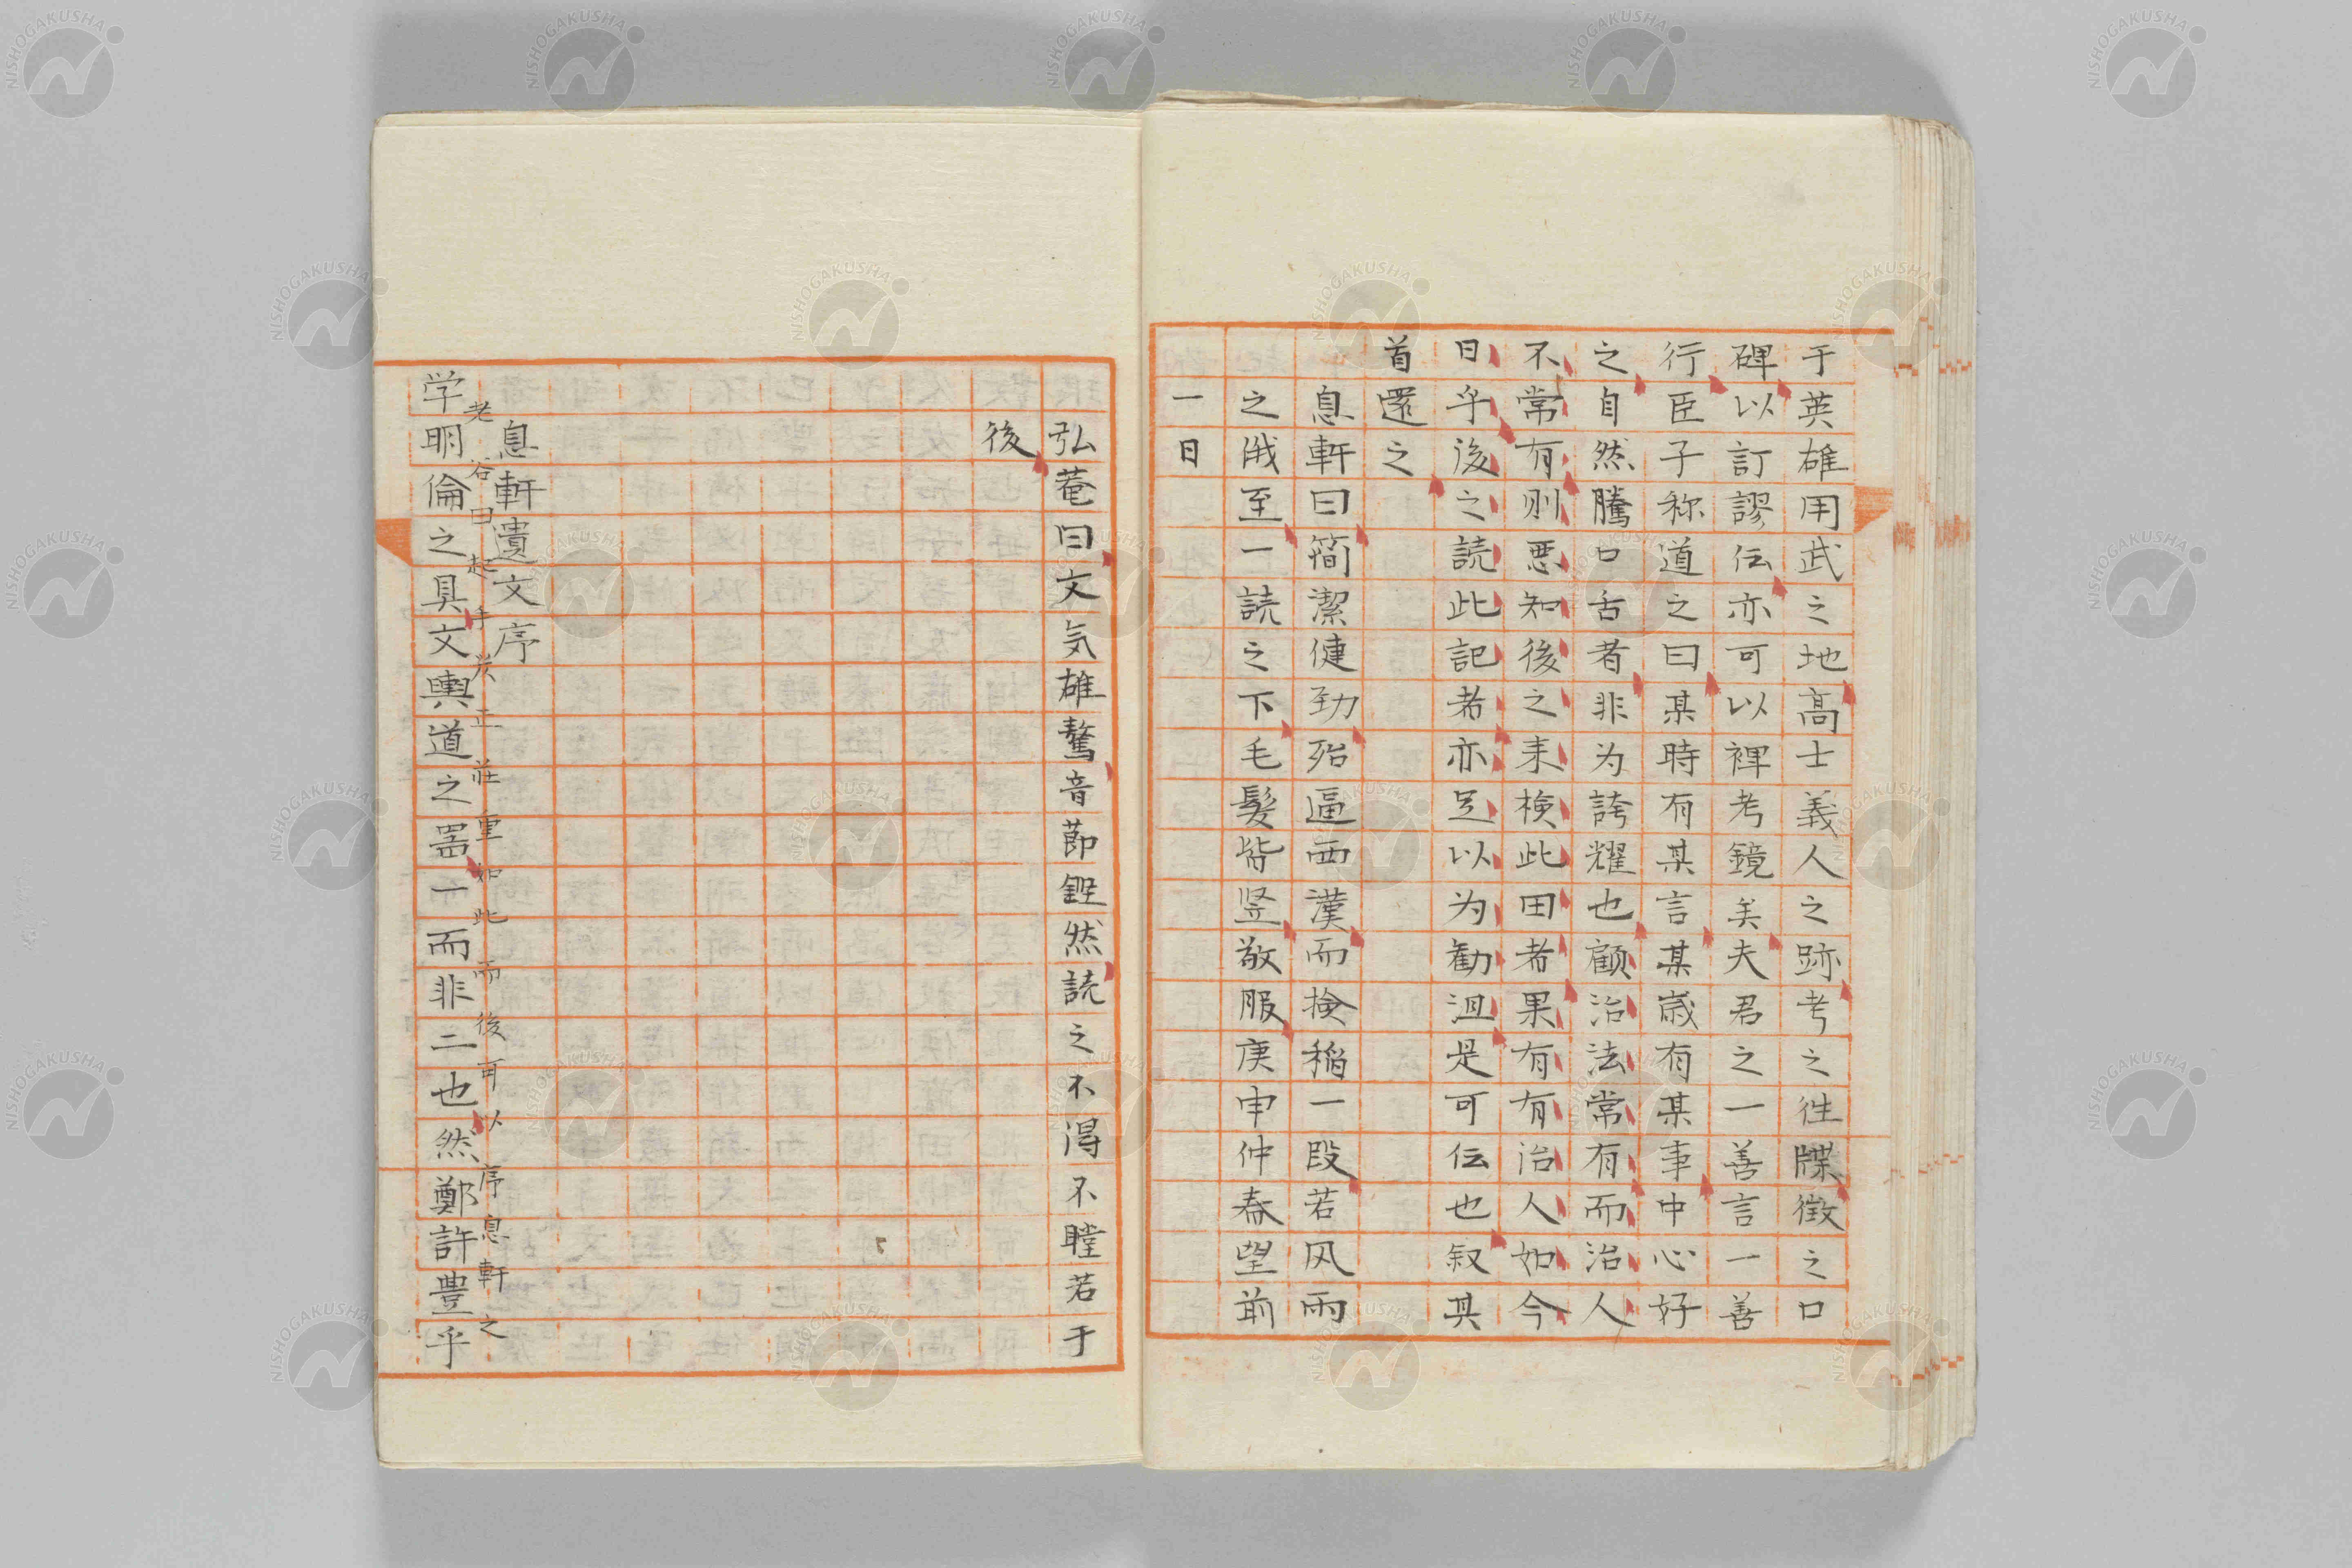 于英雄用武之地高士義人之跡考之徃牒徴之口
碑以訂謬伝亦可以裨考鏡矣夫君之一善言一善
行臣子称道之曰某時有某言某歳有某事中心好
之自然騰口舌者非为誇耀也顧治法常有而治人
不常有則悪知後之来検此田者果有有治人如今
日乎後之読此記者亦足以为勧沮是可伝也叙其
首還之
息軒曰簡潔健勁殆逼西漢而検稲一段若风雨
之俄至一読之下毛髪皆竖敬服庚申仲春望前
一日
弘菴曰文気雄驁音節鏗然読之不得不瞠若于
後
息軒遺文序
老谷曰起手炭正荘重如此而後可以序息軒之
学明倫之具文輿道之噐一而非二也然鄭許豊乎
NISHOGAKUSHA